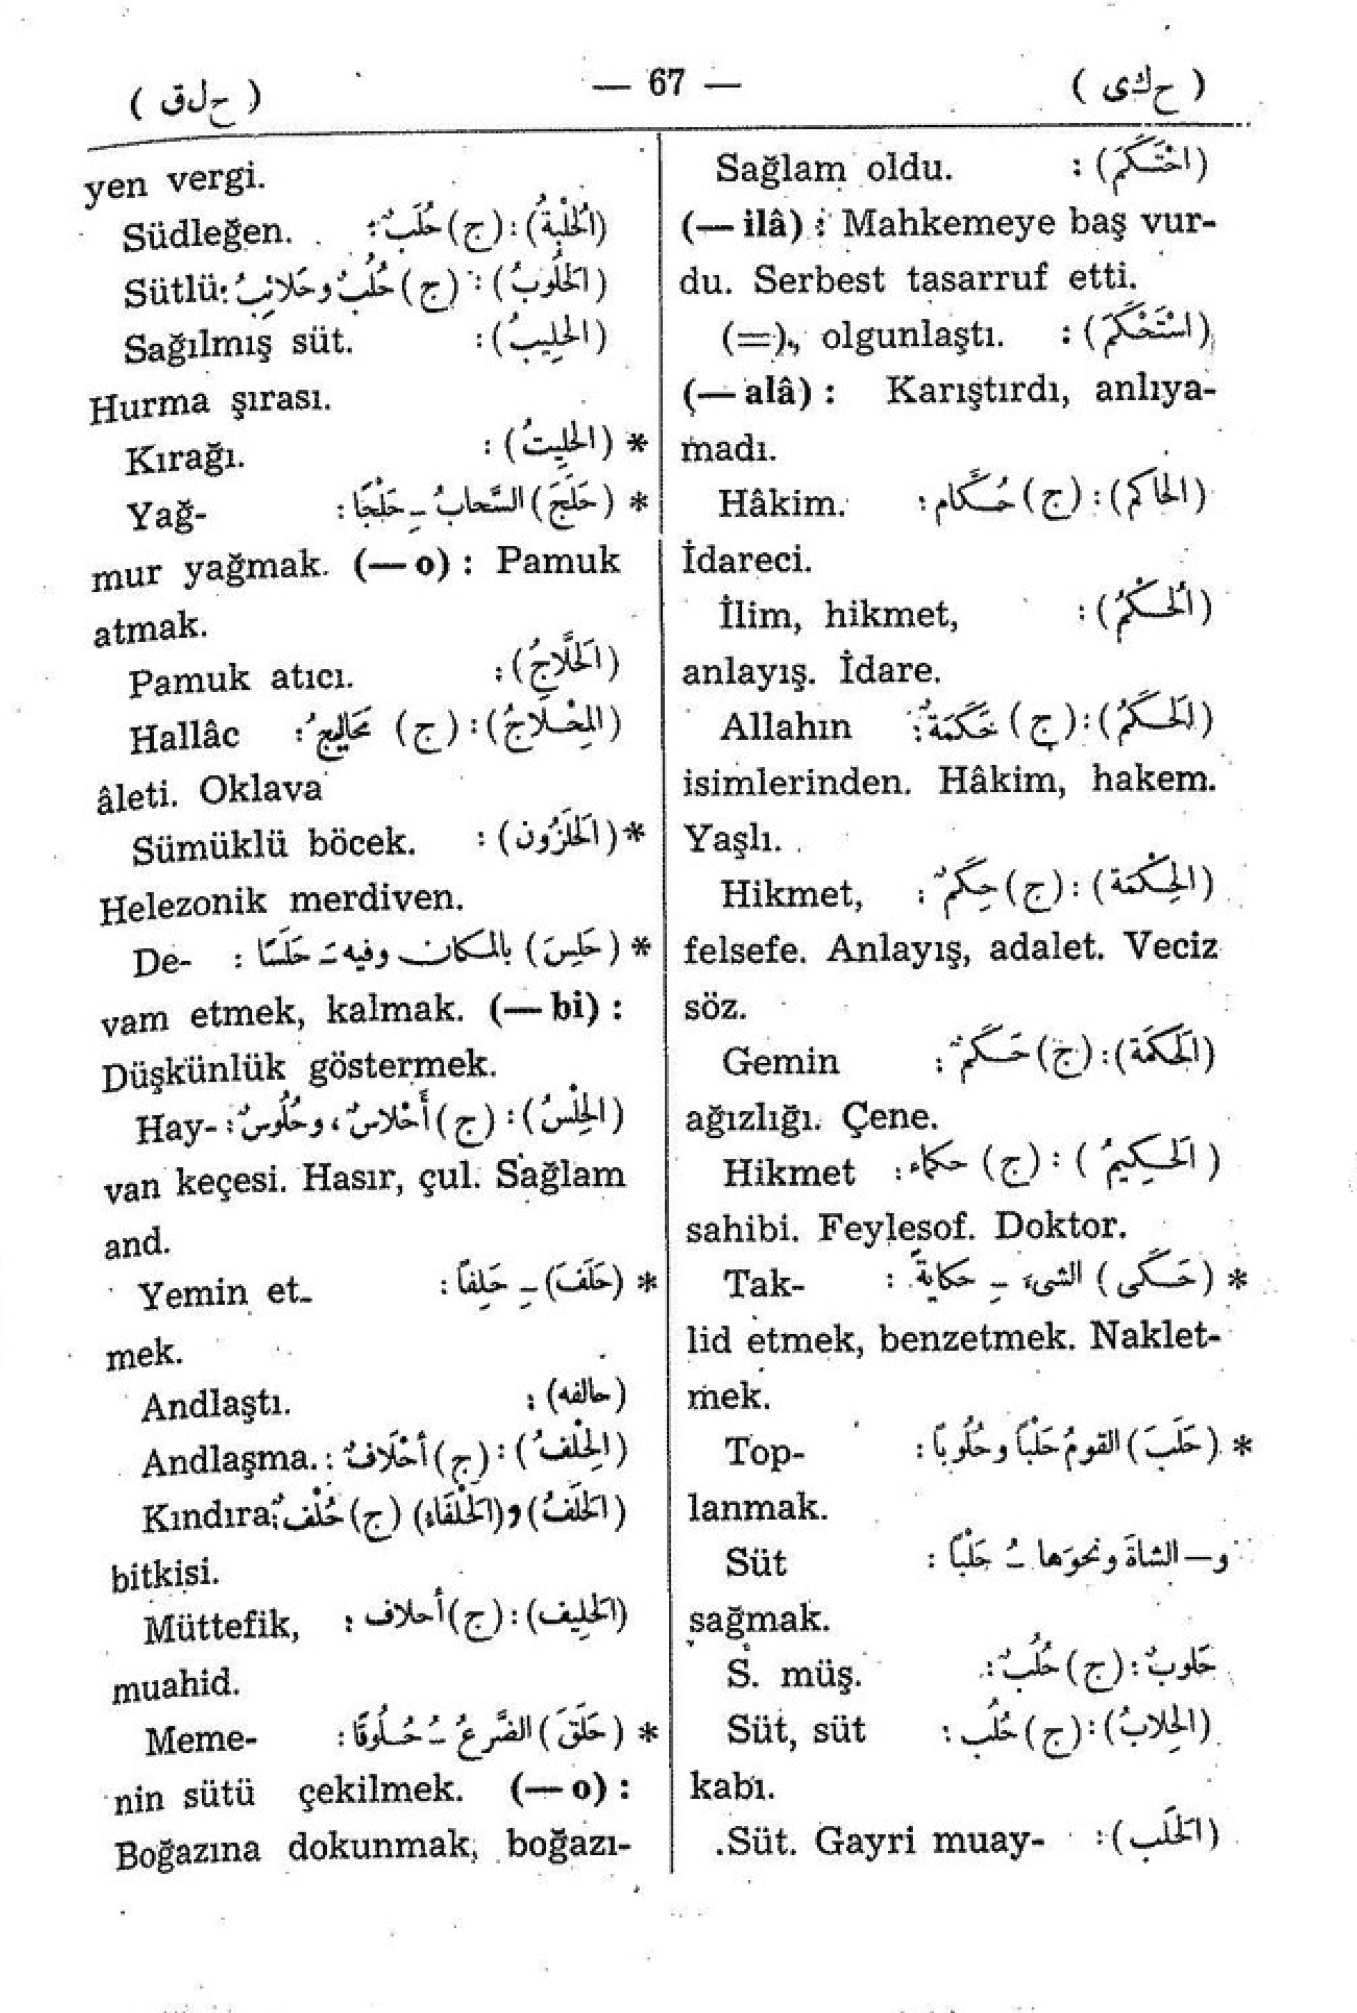 (ح ك ى) — 67 — (ح ل ق)
(احْتَكَمَ) : Sağlam oldu.
(— ilâ) : Mahkemeye baş vur-
du. Serbest tasarruf etti.
(اسْتَحْكَمَ) : (=), olgunlaştı.
(— alâ) : Karıştırdı, anlıya-
madı.
(الحاكم) : (ج) حُكَّام : Hâkim.
İdareci.
(الحُكْمُ) : İlim, hikmet,
anlayış. İdare.
(الحَكَمُ) : (ج) حَكَمَةٌ : Allahın
isimlerinden. Hâkim, hakem.
Yaşlı.
(الحِكْمَة) : (ج) حِكَمٌ : Hikmet,
felsefe. Anlayış, adalet. Veciz
söz.
(الحَكَمَة) : (ج) حَكَمٌ : Gemin
ağızlığı. Çene.
(الحَكِيمُ) : (ج) حكماء : Hikmet
sahibi. Feylesof. Doktor.
* (حَكَى) الشىءَ ـِ حكايةً : Tak-
lid etmek, benzetmek. Naklet-
mek.
* (حَلَبَ) القومُ حَلْبًا وحُلُوبًا : Top-
lanmak.
و— الشاةَ ونحوَها ـُ حَلْبًا : Süt
sağmak.
حَلوبٌ : (ج) حُلُبٌ : S. müş.
(الحِلابُ) : (ج) حُلُب : Süt, süt
kabı.
(الحَلَب) : Süt. Gayri muay-
yen vergi.
(الحُلْبةُ) : (ج) حُلَبٌ : Südleğen.
(الحَلُوبُ) : (ج) حُلُبٌ وحَلائِبُ : Sütlü
(الحَلِيبُ) : Sağılmış süt.
Hurma şırası.
* (الحَلِيتُ) : Kırağı.
* (حَلَجَ) السَّحابُ ـِ حَلْجًا : Yağ-
mur yağmak. (— o) : Pamuk
atmak.
(الحَلَّاجُ) : Pamuk atıcı.
(المِحْلَاجُ) : (ج) مَحَاليجُ : Hallâc
âleti. Oklava
* (الحَلَزُون) : Sümüklü böcek.
Helezonik merdiven.
* (حَلِسَ) بالمكان وفيه ـَ حَلَسًا : De-
vam etmek, kalmak. (— bi) :
Düşkünlük göstermek.
(الحِلْسُ) : (ج) أَحْلاسٌ، وحُلُوسٌ : Hay-
van keçesi. Hasır, çul. Sağlam
and.
* (حَلَفَ) ـِ حَلِفاً : Yemin et-
mek.
(حالفه) : Andlaştı.
(الحِلْفُ) : (ج) أحْلَافٌ : Andlaşma.
(الحَلَفُ) و(الحَلْفَاء) (ج) حُلْفٌ : Kındıra
bitkisi.
(الحَلِيف) : (ج) أحلاف : Müttefik,
muahid.
* (حَلَقَ) الضَّرعُ ـُ حُلُوقًا : Meme-
nin sütü çekilmek. (— o) :
Boğazına dokunmak, boğazı-